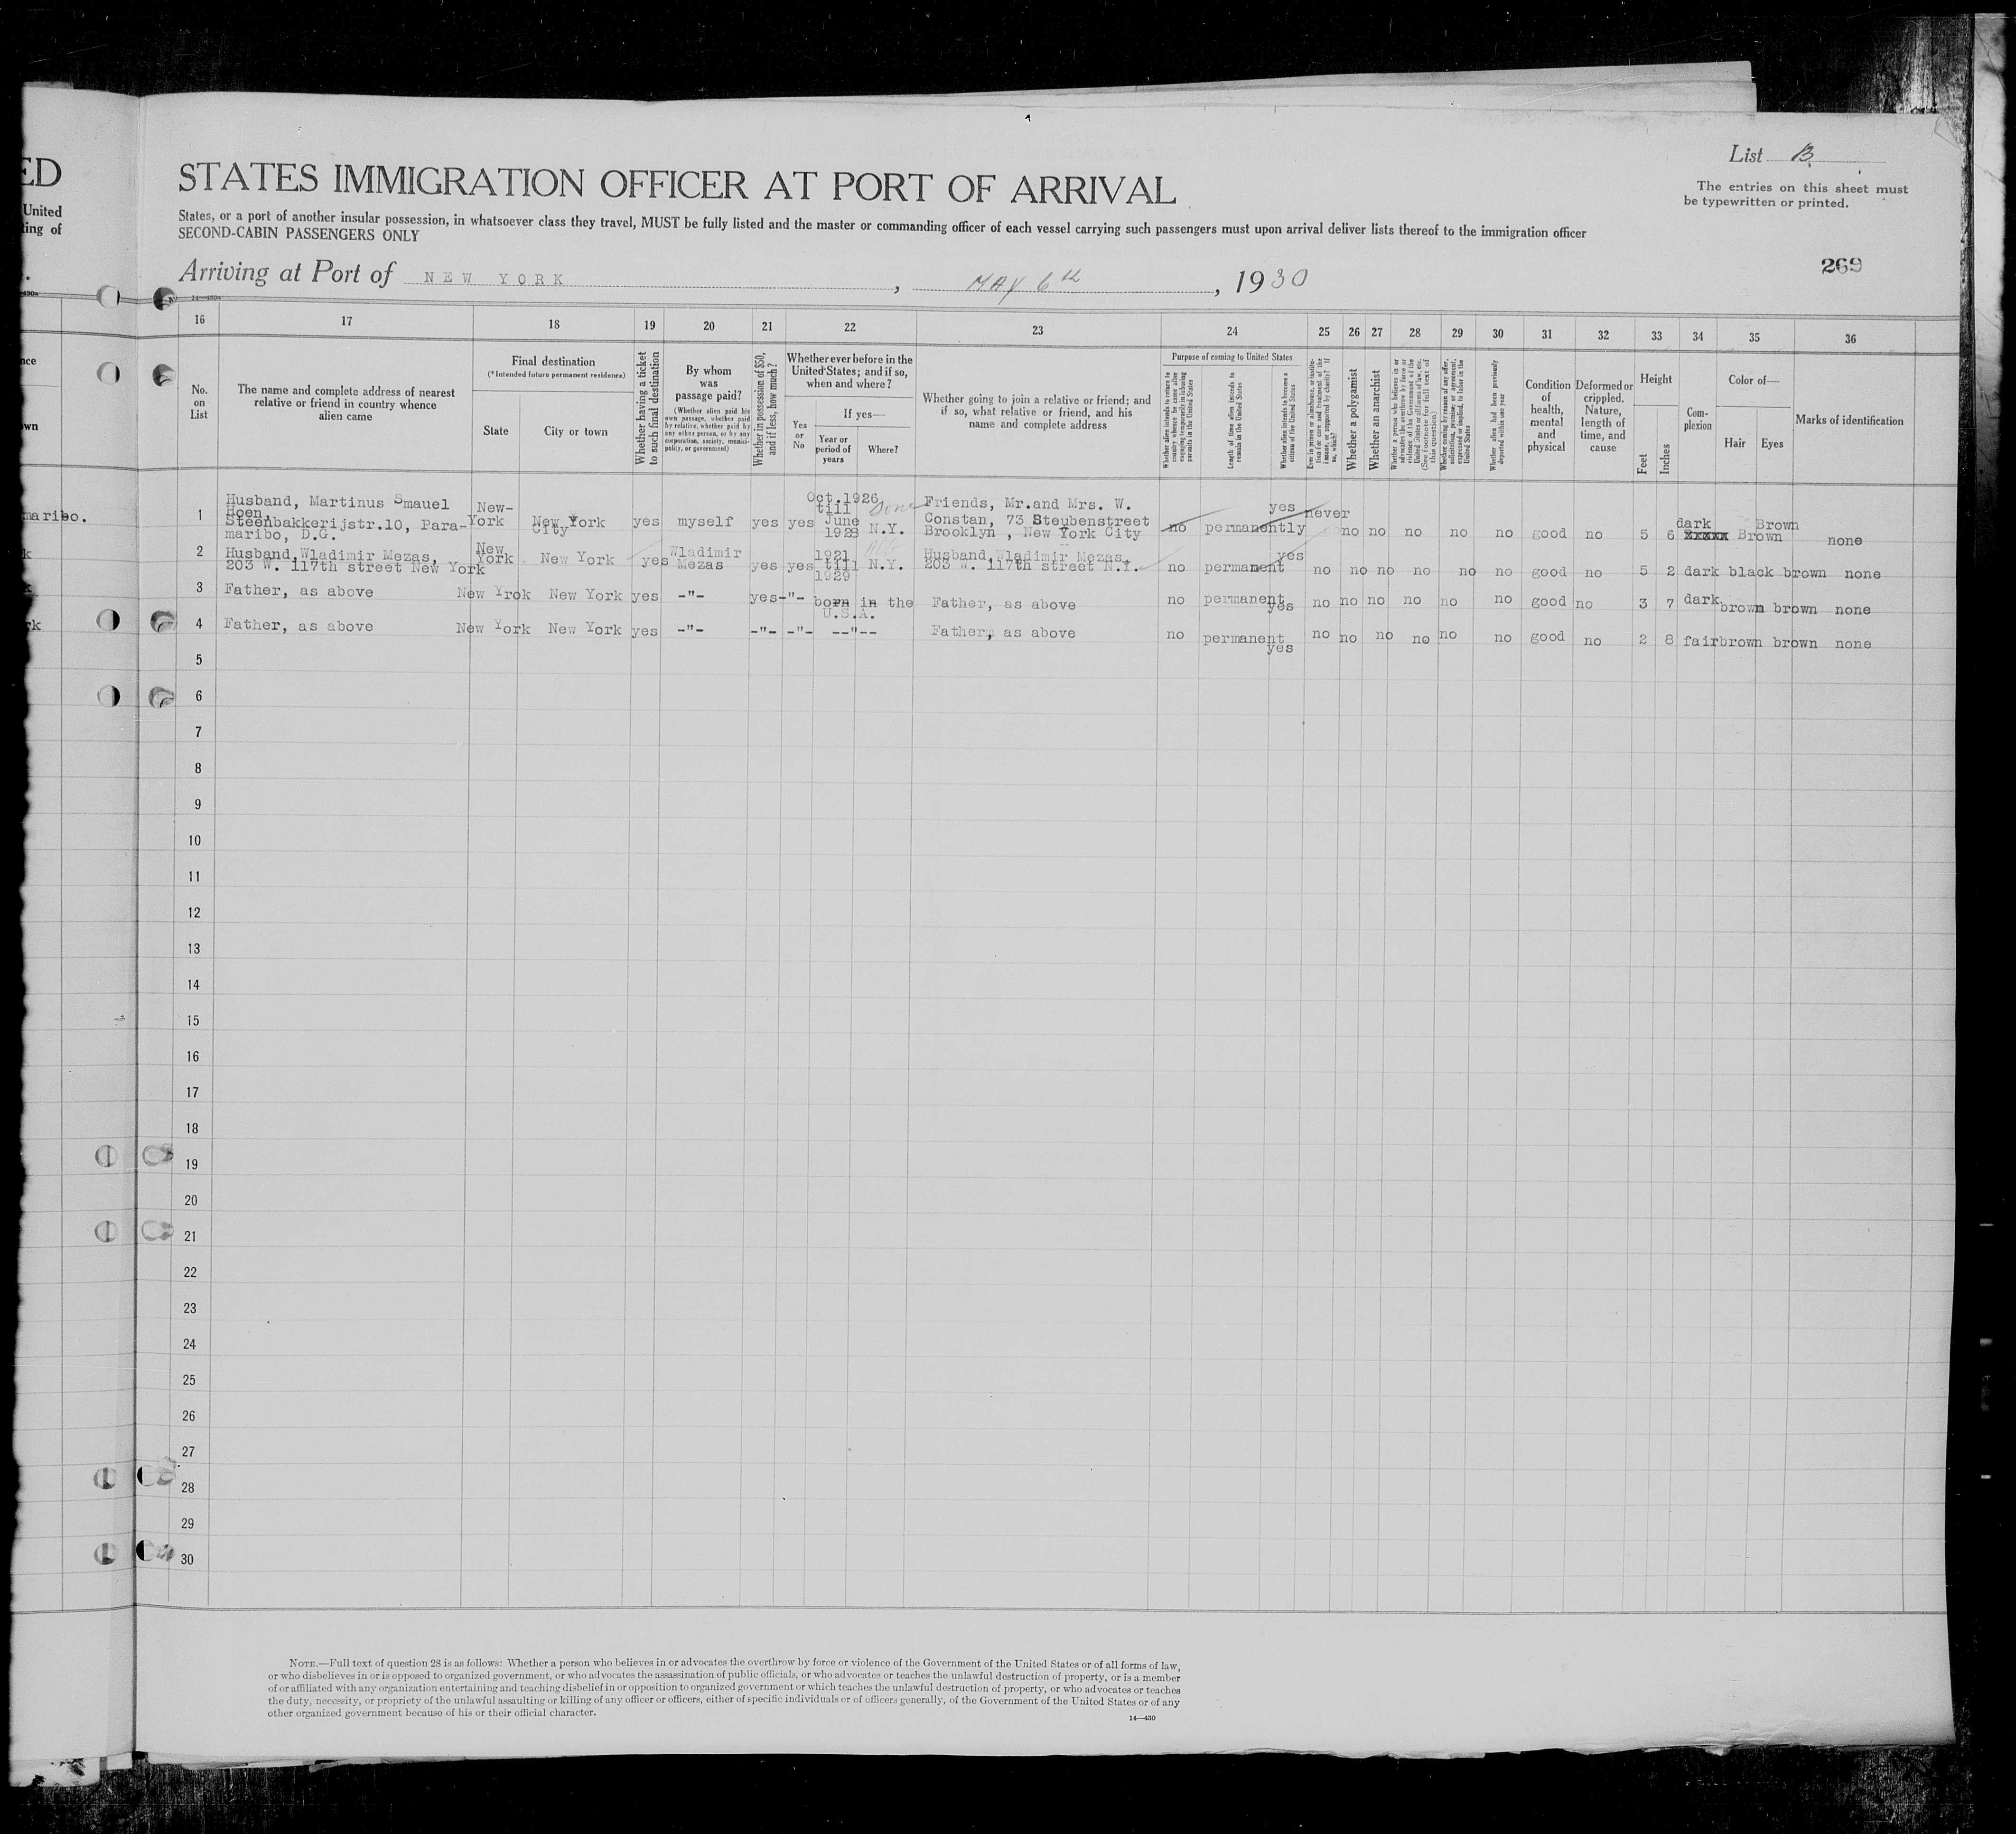 ED
United
ing of
STATES IMMIGRATION OFFICER AT PORT OF ARRIVAL
List B
The entries on this sheet must
be typewritten or printed.
States, or a port of another insular possession, in whatsoever class they travel, MUST be fully listed and the master or commanding officer of each vessel carrying such passengers must upon arrival deliver lists thereof to the immigration officer
SECOND-CABIN PASSENGERS ONLY
Arriving at Port of NEW YORK, MAY 6th, 1930
269
16 17 18 19 20 21 22 23 24 25 26 27 28 29 30 31 32 33 34 35 36
No. on List
The name and complete address of nearest relative or friend in country whence alien came
Final destination
(*Intended future permanent residence)
State
City or town
Whether having a ticket to such final destination
By whom was passage paid?
(Whether alien paid his own passage, whether paid by relative, whether paid by any other person, or by any corporation, society, municipality, or government)
Whether in possession of $50, and if less, how much?
Whether ever before in the United States; and if so, when and where?
Yes or No
If yes—
Year or period of years
Where?
Whether going to join a relative or friend; and if so, what relative or friend, and his name and complete address
Purpose of coming to United States
Whether alien intends to return to country whence he came after engaging temporarily in laboring pursuits in the United States
Length of time alien intends to remain in the United States
Whether alien intends to become a citizen of the United States
Ever in prison or almshouse, or institution for care and treatment of the insane, or supported by charity? If so, which?
Whether a polygamist
Whether an anarchist
Whether a person who believes in or advocates the overthrow by force or violence of the Government of the United States or all forms of law, etc. (See footnote for full text of this question)
Whether coming by reason of any offer, solicitation, promise, or agreement, expressed or implied, to labor in the United States
Whether alien had been previously deported within one year
Condition of health, mental and physical
Deformed or crippled. Nature, length of time, and cause
Height
Feet
Inches
Complexion
Color of—
Hair
Eyes
Marks of identification
maribo.
1 Husband, Martinus Smauel Hoen, Steenbakkerijstr.10, Paramaribo, D.G. New-York New York City yes myself yes yes Oct.1926 till June 1928 N.Y. Friends, Mr.and Mrs. W. Constan, 73 Steubenstreet Brooklyn , New York City no permanently yes never no no no no no good no 5 6 dark xxxxx Brown Brown none
2 Husband,Wladimir Mezas, 203 W. 117th street New York New York New York yes Wladimir Mezas yes yes 1921 till 1929 N.Y. Husband,Wladimir Mezas, 203 W. 117th street N.Y. no permanent yes no no no no no no good no 5 2 dark black brown none
3 Father, as above New Yrok New York yes -"- yes -"- born in the U.S.A. Father, as above no permanent yes no no no no no no good no 3 7 dark brown brown none
4 Father, as above New York New York yes -"- -"- -"- --"-- Father, as above no permanent yes no no no no no no good no 2 8 fair brown brown none
5
6
7
8
9
10
11
12
13
14
15
16
17
18
19
20
21
22
23
24
25
26
27
28
29
30
NOTE.—Full text of question 28 is as follows: Whether a person who believes in or advocates the overthrow by force or violence of the Government of the United States or of all forms of law,
or who disbelieves in or is opposed to organized government, or who advocates the assassination of public officials, or who advocates or teaches the unlawful destruction of property, or is a member
of or affiliated with any organization entertaining and teaching disbelief in or opposition to organized government or which teaches the unlawful destruction of property, or who advocates or teaches
the duty, necessity, or propriety of the unlawful assaulting or killing of any officer or officers, either of specific individuals or of officers generally, of the Government of the United States or of any
other organized government because of his or their official character.
14—430